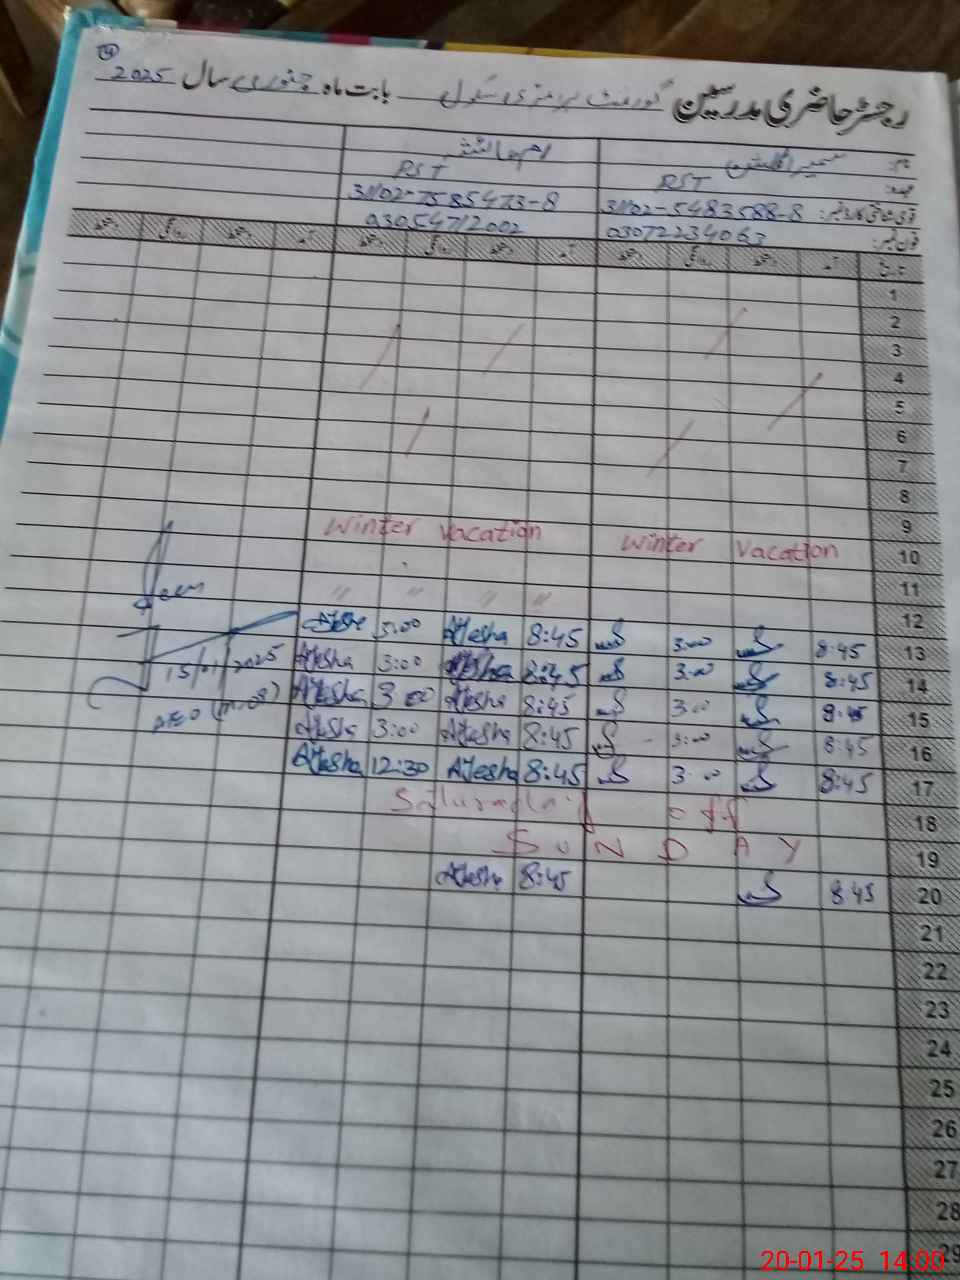 4
رجسٹر حاضری مدرسین گورنمنٹ پرائمری سکول بابت ماہ جنوری سال 2025
نام:
عہدہ: RST RST
قومی شناختی کارڈ نمبر: 31102-5483588-8 31102-7585473-8
فون نمبر: 03072234063 03054712002
تاریخ آمد دستخط روانگی دستخط آمد دستخط روانگی دستخط آمد دستخط روانگی دستخط
1
2
3
4
5
6
7
8
9
Winter Vacation Winter Vacation 10
11
" " " " 12
3:00 Atesha 8:45 3:00 8:45 13
Atesha 3:00 Atesha 8:45 3:00 8:45 14
15/01/2025 Atesha 3:00 Atesha 8:45 3:00 8:45 15
AEO Atesha 3:00 Atesha 8:45 3:00 8:45 16
Atesha 12:30 Atesha 8:45 3:00 8:45 17
Saturaday off 18
SUNDAY 19
Atesha 8:45 8:45 20
21
22
23
24
25
26
27
28
29
20-01-25 14:00